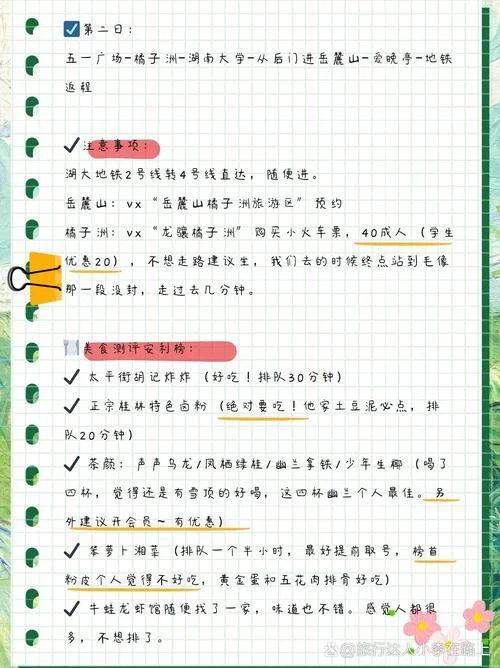 ☑第二日：
五一广场-橘子洲-湖南大学-从后门进岳麓山-爱晚亭-地铁
返程
✓注意事项：
湖大地铁2号线转4号线直达，随便进。
岳麓山：vx “岳麓山橘子洲旅游区” 预约
橘子洲：vx “龙骧橘子洲” 购买小火车票，40成人（学生
优惠20），不想走路建议坐，我们去的时候终点站到毛像
那一段没封，走过去几分钟。
🍽美食测评安利榜：
✓太平街胡记炸炸（好吃！排队30分钟）
✓正宗桂林特色卤粉（绝对要吃！他家土豆泥必点，排
队20分钟）
✓茶颜：声声乌龙/凤栖绿桂/幽兰拿铁/少年生椰（喝了
四杯，觉得还是有雪顶的好喝，这四杯幽兰个人最佳。另
外建议开会员～有优惠）
✓笨萝卜湘菜（排队一个半小时，最好提前取号，榜首
粉皮个人觉得不好吃，黄金蛋和五花肉排骨好吃）
✓牛蛙龙虾馆随便找了一家，味道也不错。感觉人都很
多，不想排了。
@旅行达人小李在路上